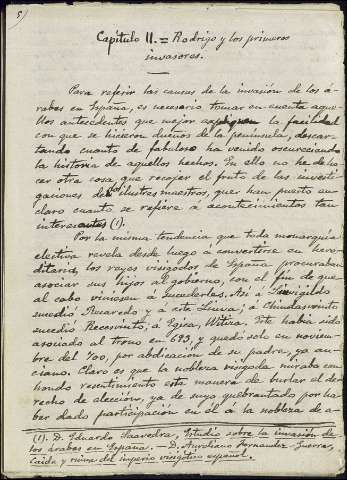 5)
Capítulo II. = Rodrigo y los primeros
invasores.
Para referir las causas de la invasión de los á-
rabes en España, es necesario tomar en cuenta aque-
llos antecedentes que mejor expliquen la facilidad
con que se hicieron dueños de la península, descar-
tando cuanto de fabuloso ha venido oscureciendo
la historia de aquellos hechos. En ello no he de ha-
cer otra cosa que recojer el fruto de las investi-
gaciones de ilustres maestros, que han puesto en
claro cuanto se refiere á acontecimientos tan
interesantes (1).
Por la misma tendencia que toda monarquía
electiva revela desde luego á convertirse en here-
ditaria, los reyes visigodos de España procuraban
asociar sus hijos al gobierno, con el fin de que
al cabo viniesen á sucederles. Así á
sucedió Recaredo y á este Liuva; á Chindasvinto
sucedió Recesvinto; á Egica, Witiza. Este había sido
asociado al trono en 693, y quedó solo en noviem-
bre del 700, por abdicación de su padre, ya an-
ciano. Claro es que la nobleza visigoda miraba con
hondo resentimiento esta manera de burlar el de-
recho de elección, ya de suyo quebrantado por ha-
ber dado participación en él a la nobleza de a-
(1). D. Eduardo Saavedra, Estudio sobre la invasión de
los árabes en España. — D. Aureliano Fernandez-Guerra,
Caída y ruina del imperio visigótico español.